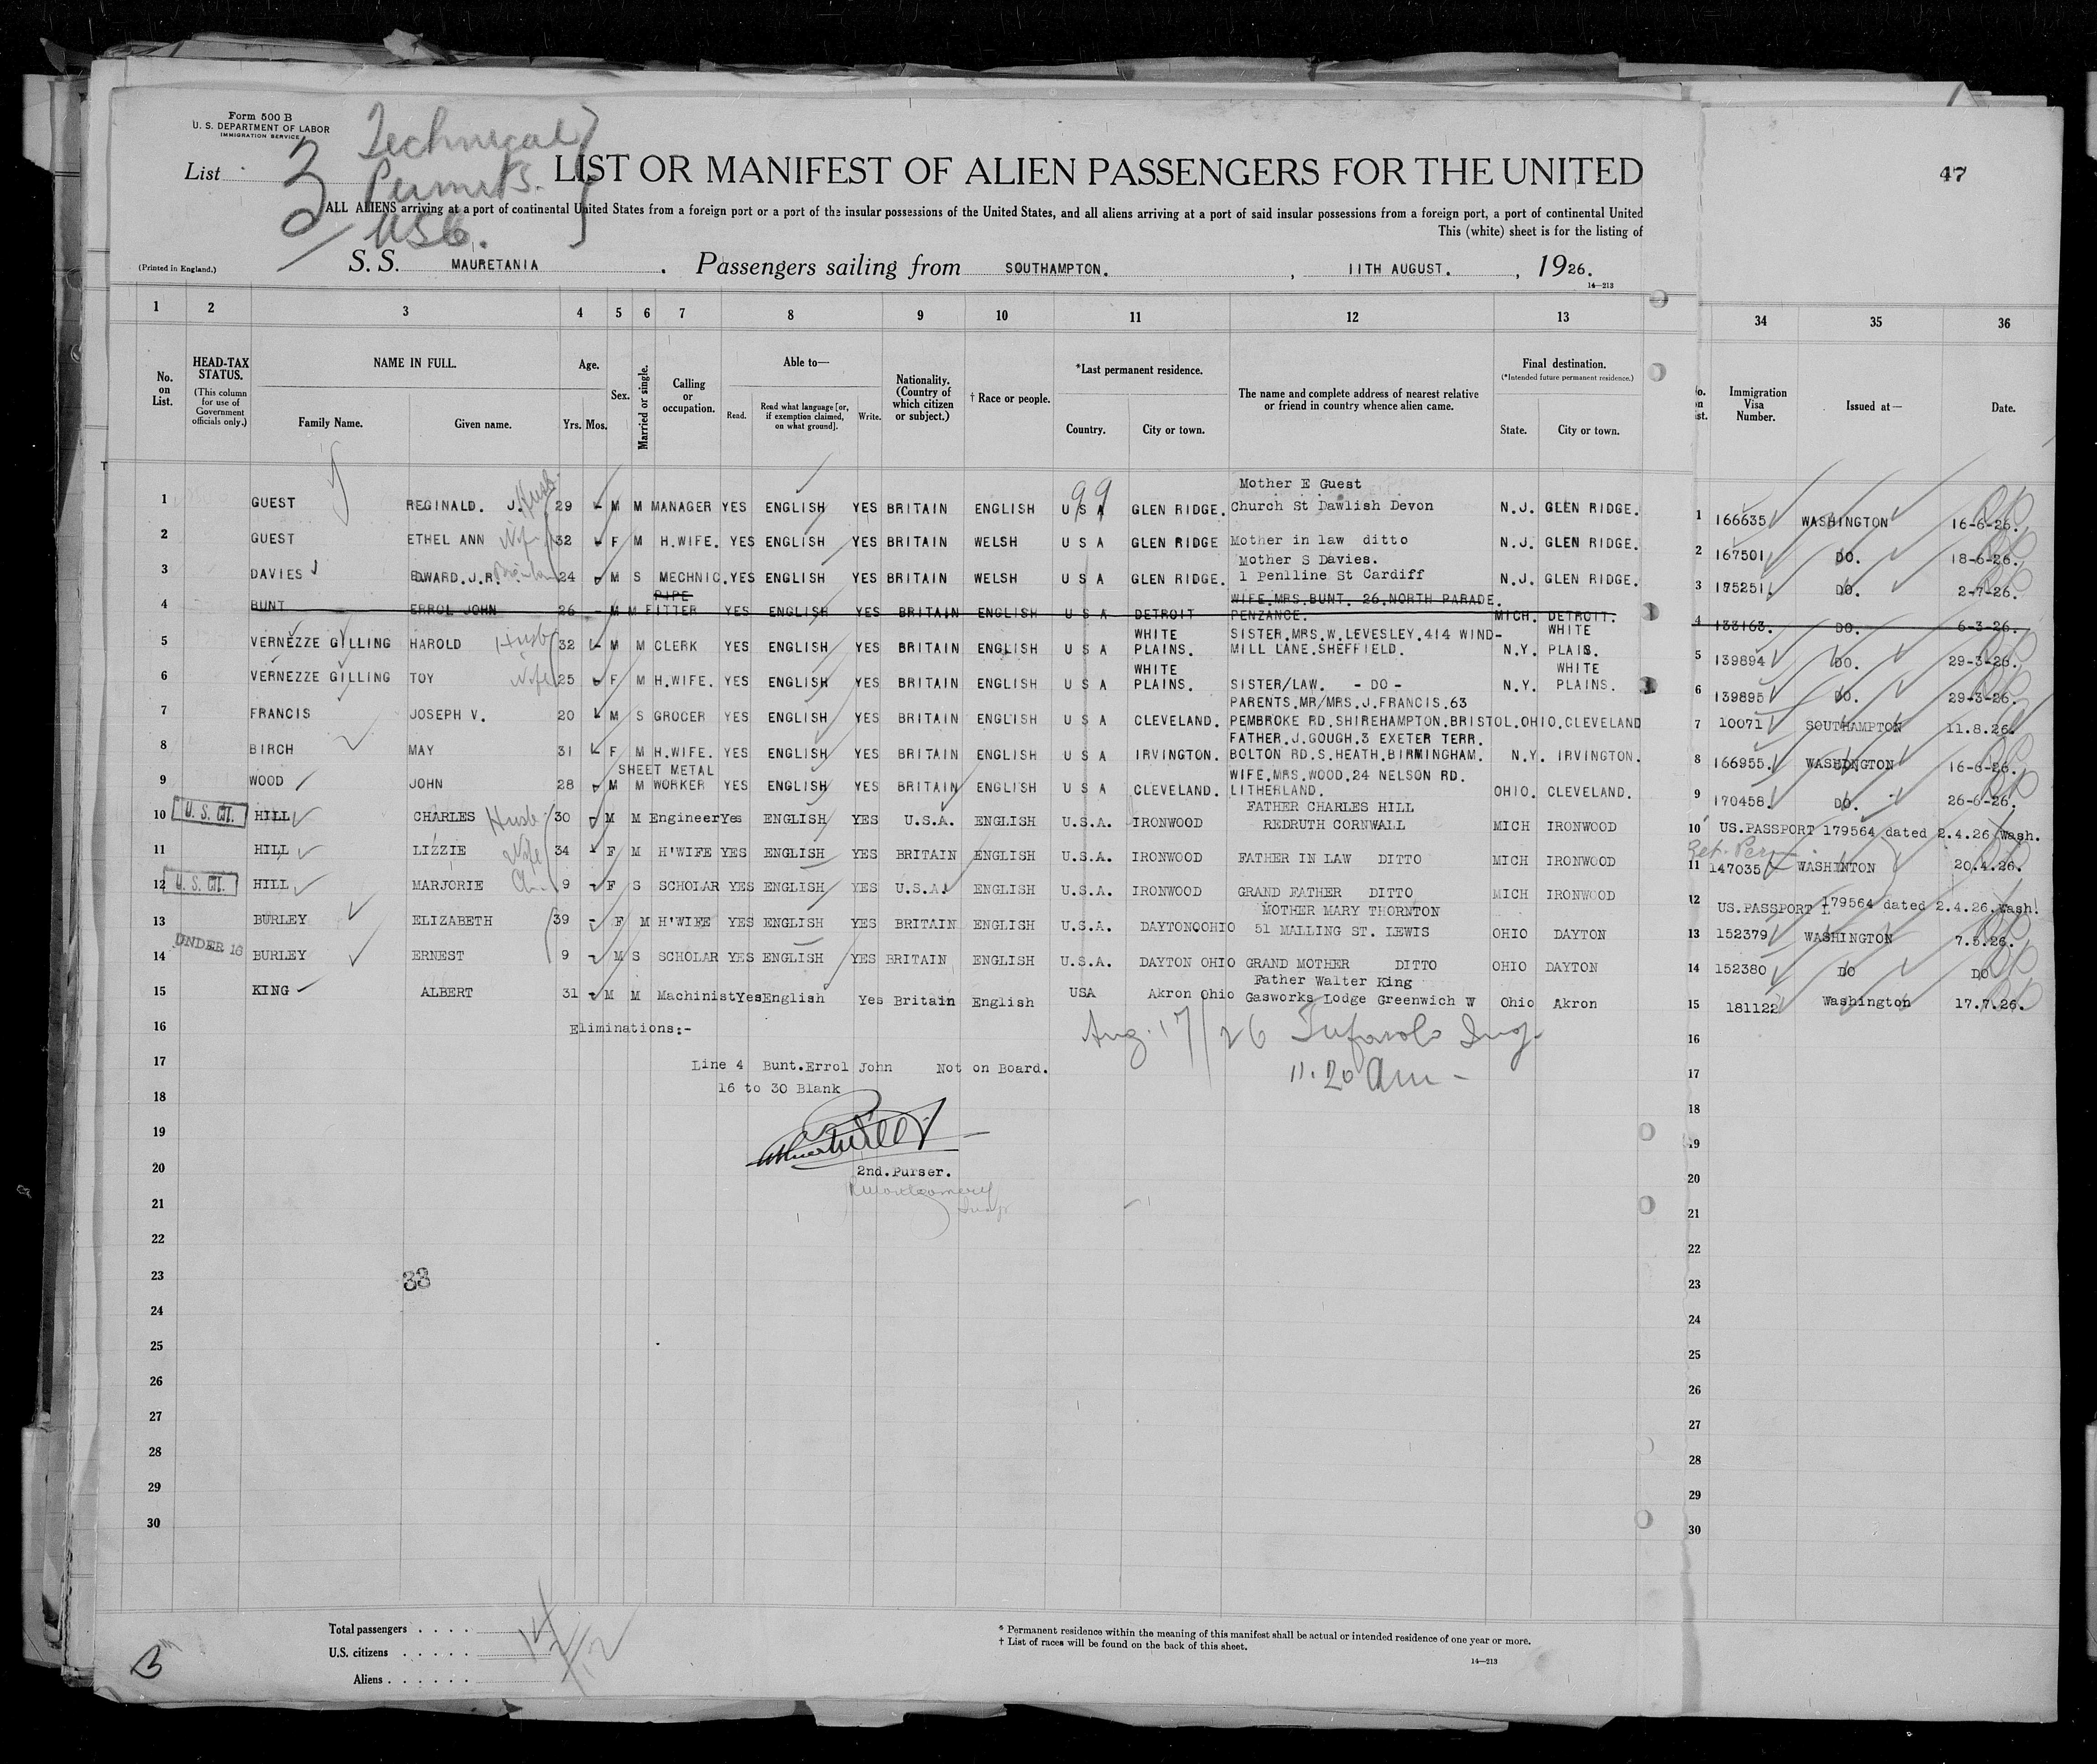 Form 500 B
U. S. DEPARTMENT OF LABOR
IMMIGRATION SERVICE
List 3
Technical
Permits.
USC.
LIST OR MANIFEST OF ALIEN PASSENGERS FOR THE UNITED
47
ALL ALIENS arriving at a port of continental United States from a foreign port or a port of the insular possessions of the United States, and all aliens arriving at a port of said insular possessions from a foreign port, a port of continental United
This (white) sheet is for the listing of
(Printed in England.)
S. S. MAURETANIA . Passengers sailing from SOUTHAMPTON. , 11TH AUGUST. , 1926.
14—213
1 2 3 4 5 6 7 8 9 10 11 12 13 34 35 36
No. on List.
HEAD-TAX STATUS.
(This column for use of Government officials only.)
NAME IN FULL.
Family Name. Given name.
Age.
Yrs. Mos.
Sex.
Married or single.
Calling or occupation.
Able to—
Read. Read what language [or, if exemption claimed, on what ground]. Write.
Nationality. (Country of which citizen or subject.)
† Race or people.
*Last permanent residence.
Country. City or town.
The name and complete address of nearest relative or friend in country whence alien came.
Final destination.
(*Intended future permanent residence.)
State. City or town.
Immigration Visa Number.
Issued at—
Date.
Mother E Guest
1 GUEST REGINALD. J. Husb. 29 M M MANAGER YES ENGLISH YES BRITAIN ENGLISH U S A 99 GLEN RIDGE. Church St Dawlish Devon N.J. GLEN RIDGE. 1 166635 WASHINGTON 16-6-26.
2 GUEST ETHEL ANN Wife 32 F M H.WIFE. YES ENGLISH YES BRITAIN WELSH U S A GLEN RIDGE Mother in law ditto N.J. GLEN RIDGE. 2 167501 DO. 18-6-26.
Mother S Davies.
3 DAVIES EDWARD.J.R. 24 M S MECHNIC. YES ENGLISH YES BRITAIN WELSH U S A GLEN RIDGE. 1 Penlline St Cardiff N.J. GLEN RIDGE. 3 175251 DO. 2-7-26.
PIPE WIFE.MRS.BUNT. 26.NORTH PARADE.
4 BUNT ERROL JOHN 26 M M FITTER YES ENGLISH YES BRITAIN ENGLISH U S A DETROIT PENZANCE. MICH. DETROIT. 4 133163. DO. 6-3-26.
WHITE SISTER.MRS.W.LEVESLEY.414 WIND- WHITE
5 VERNEZZE GILLING HAROLD Husb 32 M M CLERK YES ENGLISH YES BRITAIN ENGLISH U S A PLAINS. MILL LANE.SHEFFIELD. N.Y. PLAIS. 5 139894 DO. 29-3-26.
WHITE WHITE
6 VERNEZZE GILLING TOY Wife 25 F M H.WIFE. YES ENGLISH YES BRITAIN ENGLISH U S A PLAINS. SISTER/LAW. - DO - N.Y. PLAINS. 6 139895 DO. 29-3-26.
PARENTS.MR/MRS.J.FRANCIS.63
7 FRANCIS JOSEPH V. 20 M S GROCER YES ENGLISH YES BRITAIN ENGLISH U S A CLEVELAND. PEMBROKE RD.SHIREHAMPTON.BRISTOL. OHIO.CLEVELAND 7 10071 SOUTHAMPTON 11.8.26.
FATHER.J.GOUGH.3 EXETER TERR.
8 BIRCH MAY 31 F M H.WIFE. YES ENGLISH YES BRITAIN ENGLISH U S A IRVINGTON. BOLTON RD.S.HEATH.BIRMINGHAM. N.Y. IRVINGTON. 8 166955. WASHINGTON 16-6-26.
SHEET METAL WIFE.MRS.WOOD.24 NELSON RD.
9 WOOD JOHN 28 M M WORKER YES ENGLISH YES BRITAIN ENGLISH U S A CLEVELAND. LITHERLAND. OHIO. CLEVELAND. 9 170458. DO. 26-6-26.
FATHER CHARLES HILL
10 U. S. CIT. HILL CHARLES Husb 30 M M Engineer Yes ENGLISH YES U.S.A. ENGLISH U.S.A. IRONWOOD REDRUTH CORNWALL MICH IRONWOOD 10 US.PASSPORT 179564 dated 2.4.26 Wash.
11 HILL LIZZIE Wife 34 F M H'WIFE YES ENGLISH YES BRITAIN ENGLISH U.S.A. IRONWOOD FATHER IN LAW DITTO MICH IRONWOOD 11 147035 WASHINTON 20.4.26.
12 U. S. CIT. HILL MARJORIE Ch. 9 F S SCHOLAR YES ENGLISH YES U.S.A. ENGLISH U.S.A. IRONWOOD GRAND FATHER DITTO MICH IRONWOOD 12 US.PASSPORT 179564 dated 2.4.26.Wash.
MOTHER MARY THORNTON
13 BURLEY ELIZABETH 39 F M H'WIFE YES ENGLISH YES BRITAIN ENGLISH U.S.A. DAYTONOOHIO 51 MALLING ST. LEWIS OHIO DAYTON 13 152379 WASHINGTON 7.5.26.
UNDER 16
14 BURLEY ERNEST 9 M S SCHOLAR YES ENGLISH YES BRITAIN ENGLISH U.S.A. DAYTON OHIO GRAND MOTHER DITTO OHIO DAYTON 14 152380 DO DO
Father Walter King
15 KING ALBERT 31 M M Machinist Yes English Yes Britain English USA Akron Ohio Gasworks Lodge Greenwich W Ohio Akron 15 181122 Washington 17.7.26.
16 Eliminations:- Aug. 17/26 16
17 Line 4 Bunt.Errol John Not on Board. 11.20 am - 17
16 to 30 Blank
18 18
19 19
20 2nd.Purser. 20
R Montgomery
21 21
22 22
23 33 23
24 24
25 25
26 26
27 27
28 28
29 29
30 30
Total passengers . . . . 14
U.S. citizens . . . . . 2
Aliens . . . . . . 12
* Permanent residence within the meaning of this manifest shall be actual or intended residence of one year or more.
† List of races will be found on the back of this sheet.
14—213
B